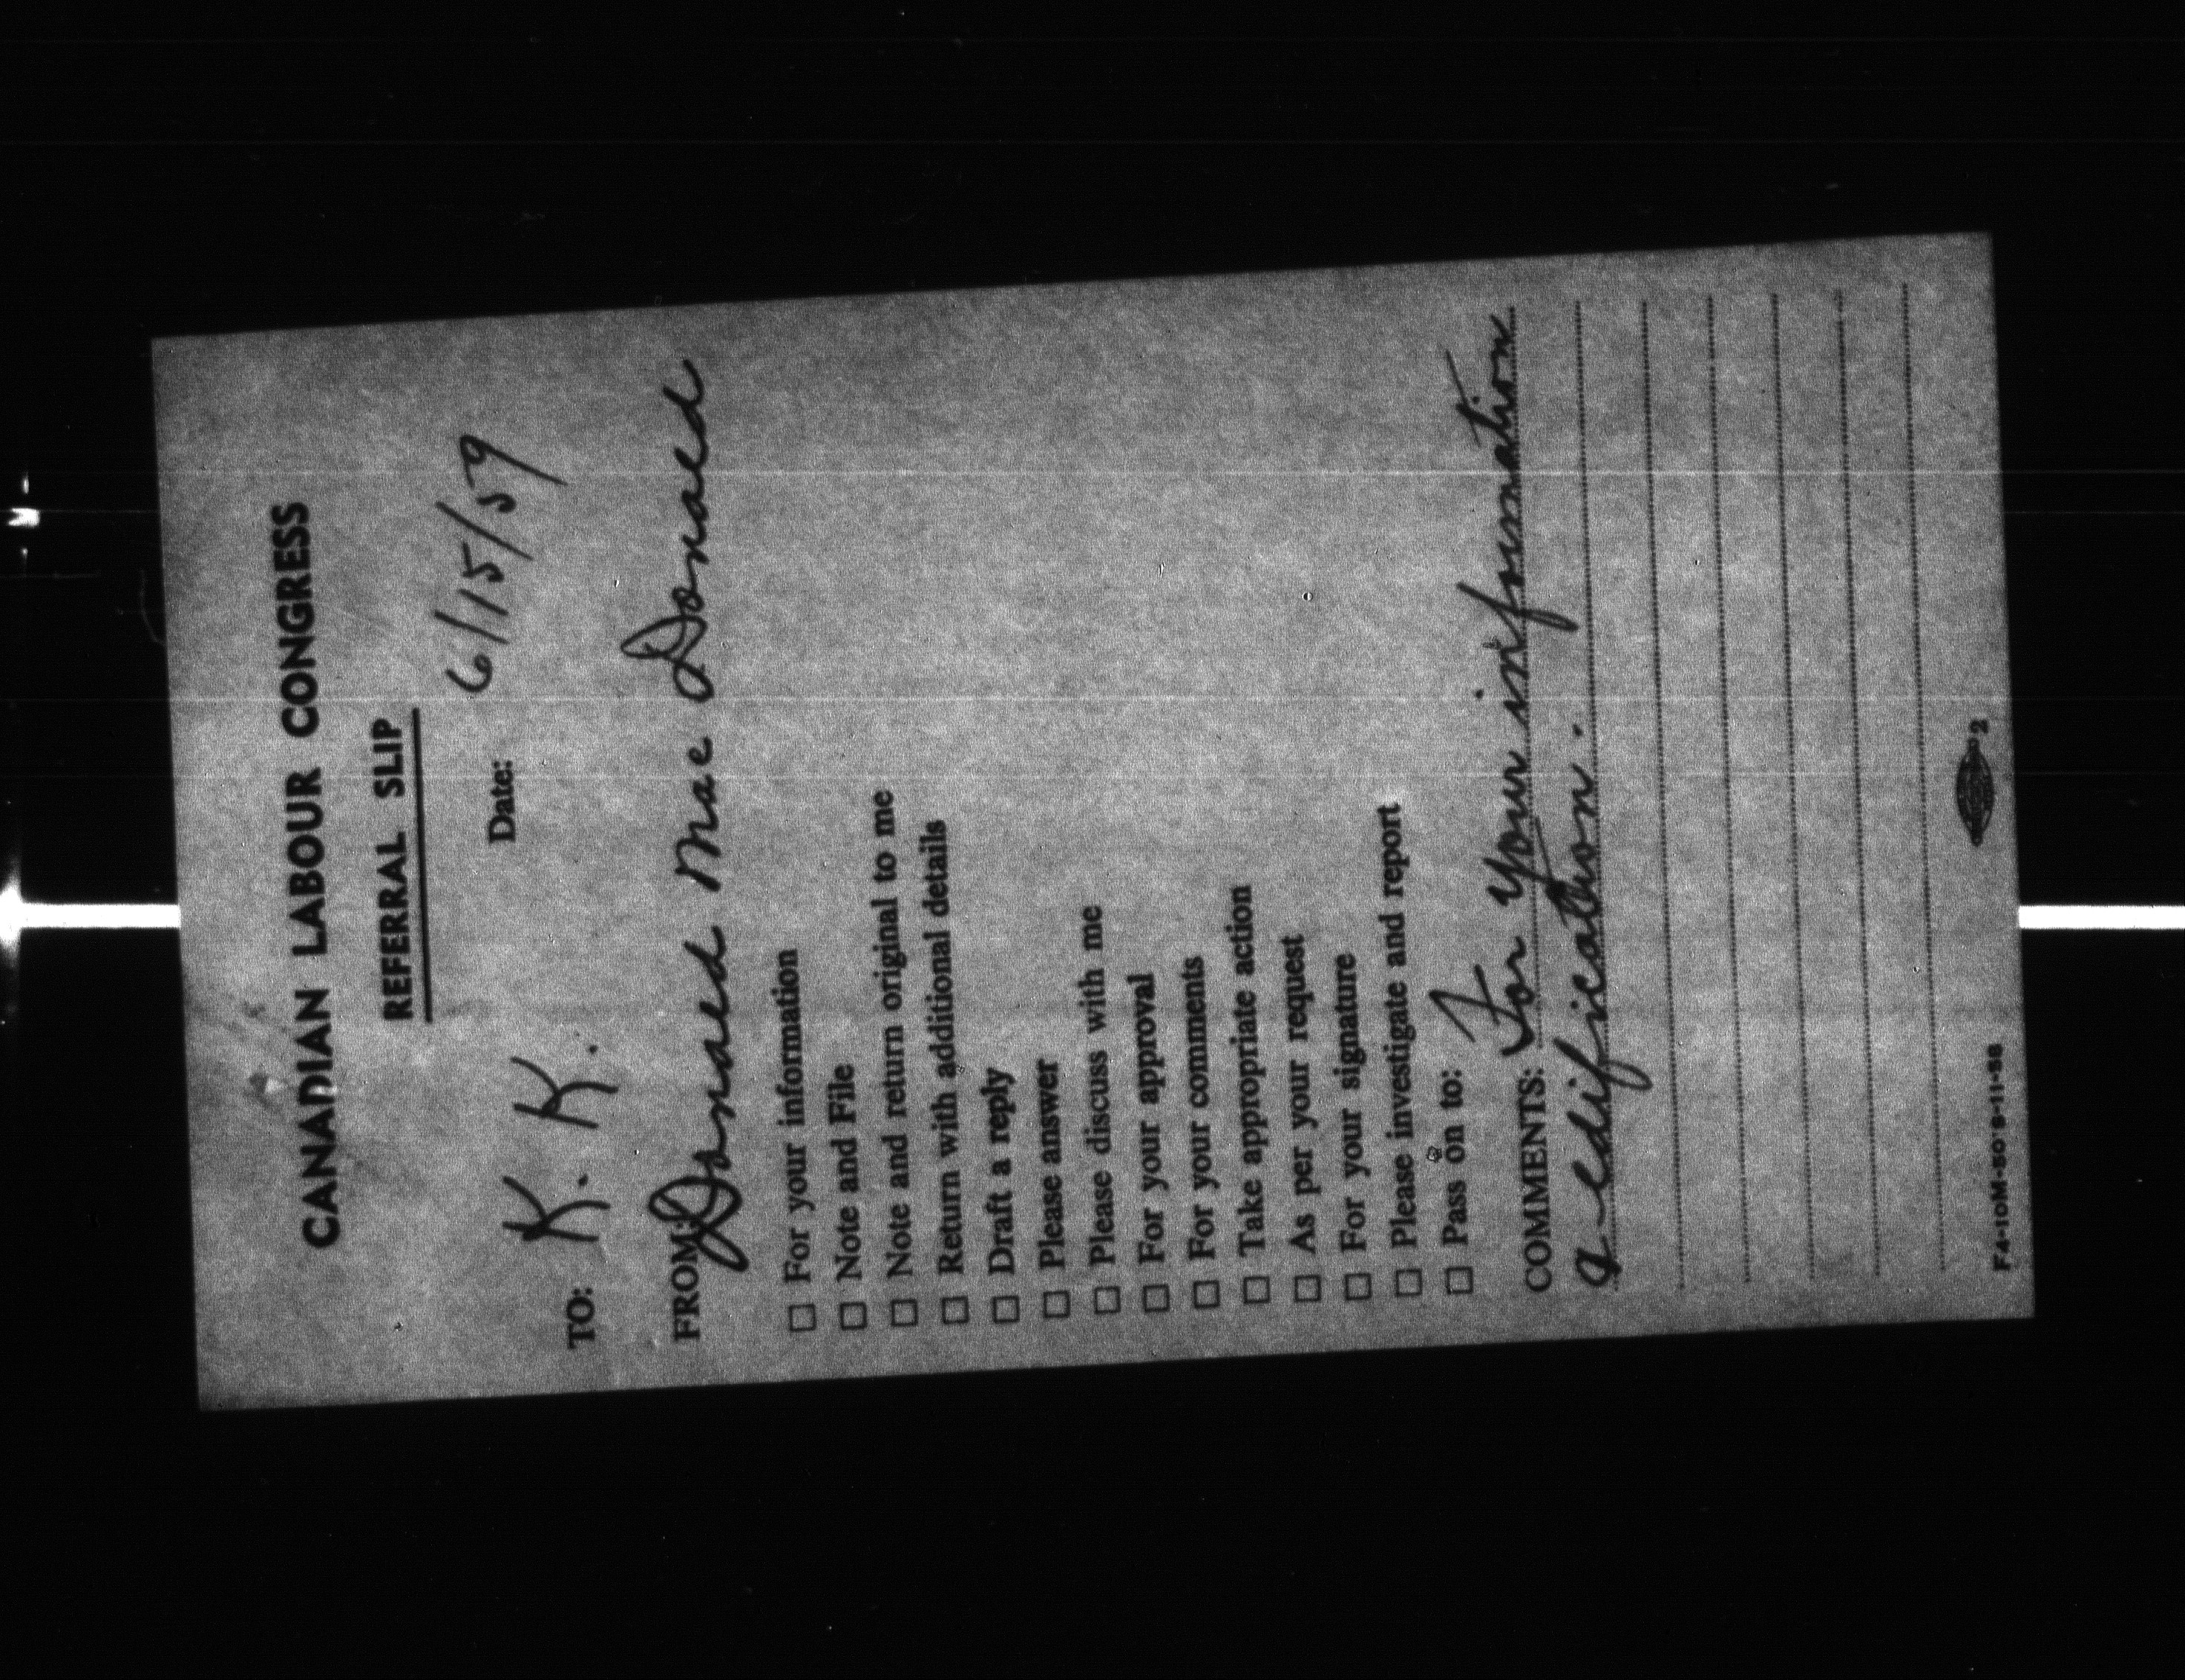 CANADIAN LABOUR CONGRESS
REFERRAL SLIP
Date: 6/15/59
TO: K. K.
FROM: Donald MacDonald
☐ For your information
☐ Note and File
☐ Note and return original to me
☐ Return with additional details
☐ Draft a reply
☐ Please answer
☐ Please discuss with me
☐ For your approval
☐ For your comments
☐ Take appropriate action
☐ As per your request
☐ For your signature
☐ Please investigate and report
☐ Pass on to:
COMMENTS: For your information
& edification.
F4-10M-50'S-11-58
2